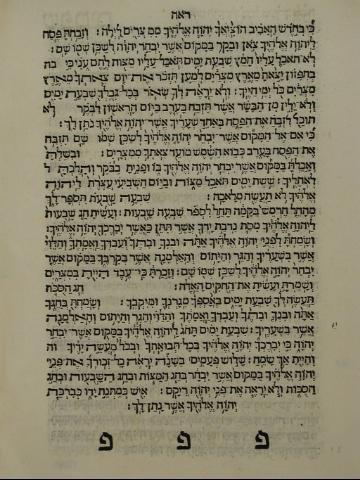 ראה
כי בחדש האביב הוציאך יהוה אלהיך ממצרים לילה : וזבחת פסח
ליהוה אלהיך צאן ובקר במקום אשר יבחר יהוה לשכן שמו שם :
לא תאכל עליו חמץ שבעת ימים תאכל עליו מצות לחם עני כי בח
בחפזון יצאת מארץ מצרים למען תזכר את יום צאתך מארץ
מצרים כל ימי חייך : ולא יראה לך שאר בכל גבלך שבעת ימים
ולא ילין מן הבשר אשר תזבח בערב ביום הראשון לבקר : לא
תוכל לזבח את הפסח באחד שעריך אשר יהוה אלהיך נתן לך :
כי אם אל המקום אשר יבחר יהוה אלהיך לשכן שמו שם תזבח
את הפסח בערב כבוא השמש מועד צאתך ממצרים : ובשלת
ואכלת במקום אשר יבחר יהוה אלהיך בו ופנית בבקר והלכת
לאהליך : ששת ימים תאכל מצות וביום השביעי עצרת ליהוה
אלהיך לא תעשה מלאכה : שבעה שבעת תספר לך
מהחל חרמש בקמה תחל לספר שבעה שבעות : ועשית חג שבעות
ליהוה אלהיך מסת נדבת ידך אשר תתן כאשר יברכך יהוה אלהיך :
ושמחת לפני יהוה אלהיך אתה ובנך ובתך ועבדך ואמתך והלוי
אשר בשעריך והגר והיתום והאלמנה אשר בקרבך במקום אשר
יבחר יהוה אלהיך לשכן שמו שם : וזכרת כי עבד היית במצרים
ושמרת ועשית את החקים האלה : חג הסכת
תעשה לך שבעת ימים באספך מגרנך ומיקבך : ושמחת בחגך
אתה ובנך ובתך ועבדך ואמתך והלוי והגר והיתום והאלמנה
אשר בשעריך : שבעת ימים תחג ליהוה אלהיך במקום אשר יבחר
יהוה כי יברכך יהוה אלהיך בכל תבואתך ובכל מעשה ידיך
והיית אך שמח : שלוש פעמים בשנה יראה כל זכורך את פני
יהוה אלהיך במקום אשר יבחר בחג המצות ובחג השבעות ובחג
הסכות ולא יראה את פני יהוה ריקם : איש כמתנת ידו כברכת
יהוה אלהיך אשר נתן לך :
פ פ פ